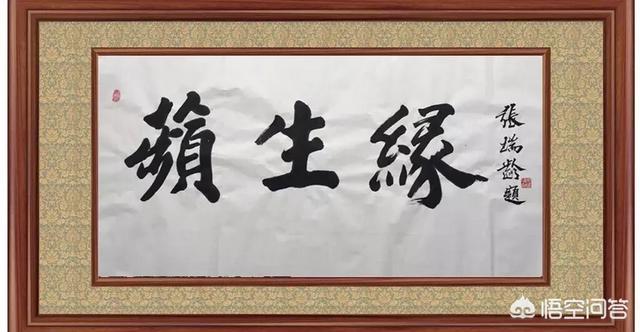 蘋生緣
張瑞齡題
悟空问答